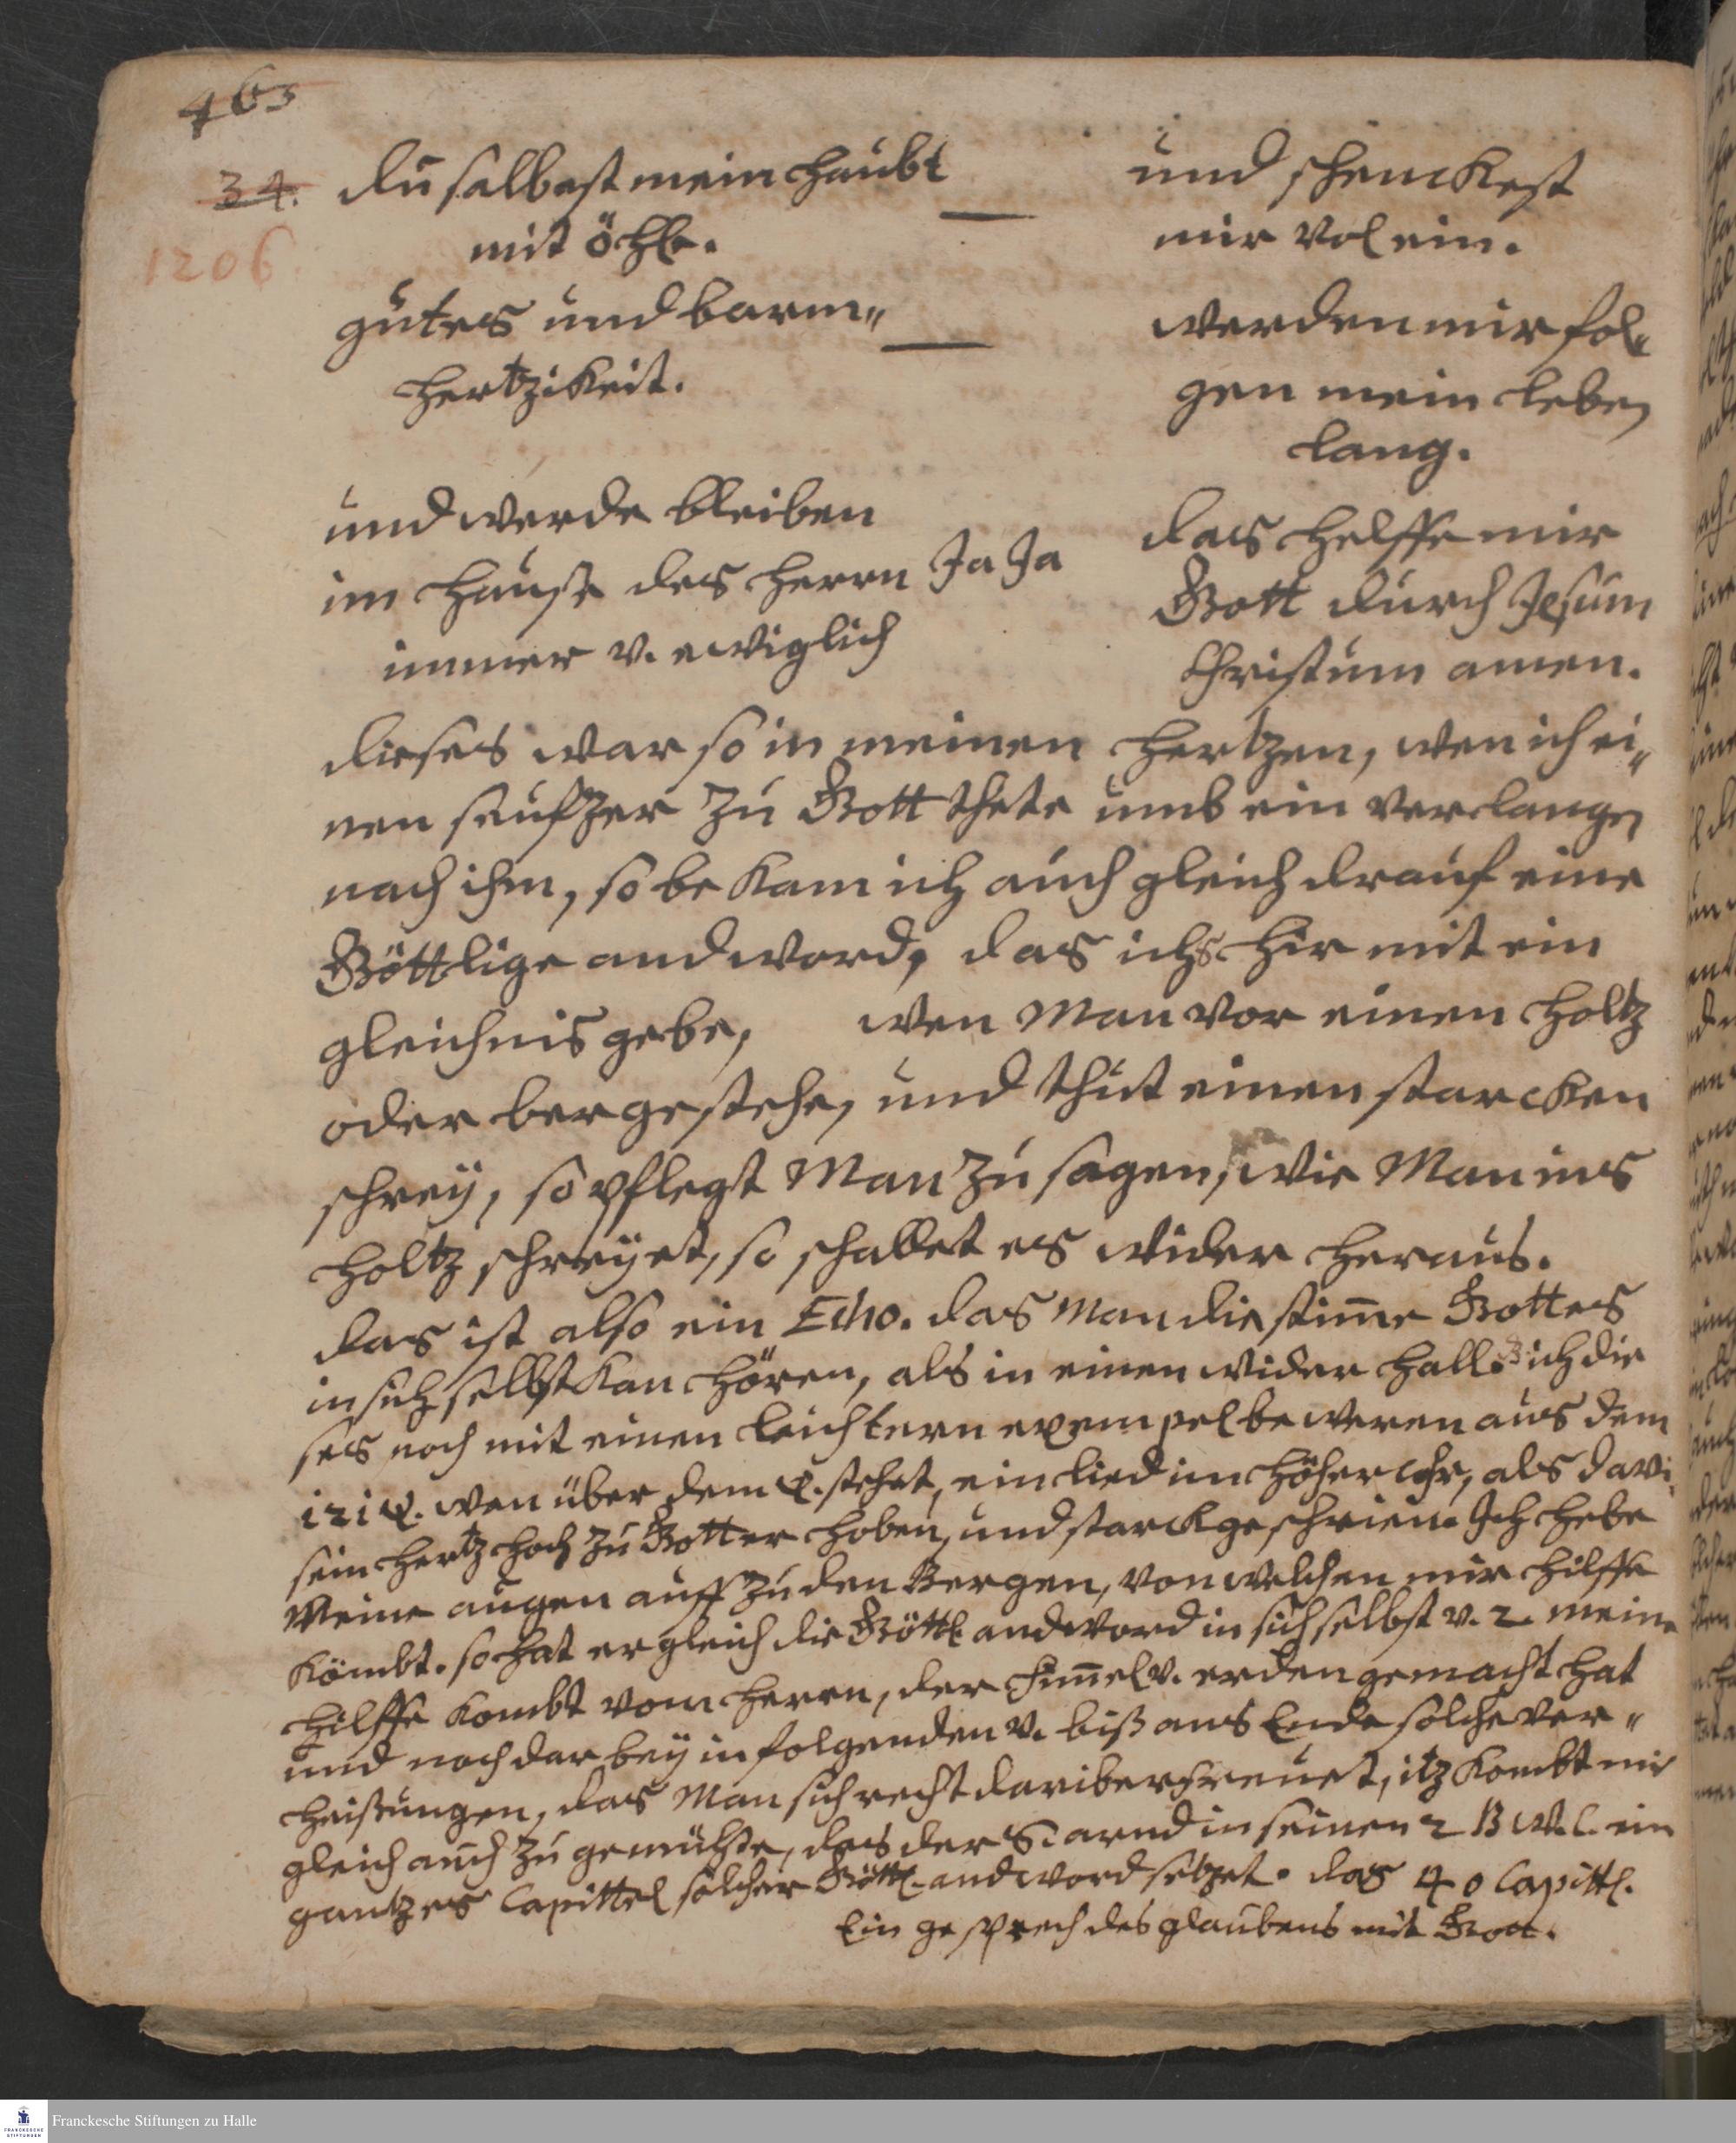 463
34.
1206
du salbest mein haubt — und schenckest
mit öhle. mir vol ein.
gutes und barm„ — werden mir fol„
hertzikeit. gen mein leben
lang.
und werde bleiben das helffe mir
im hause des herrn Ja Ja Gott durch Jesum
immer v. ewiglich Christum amen.
dieses war so in meinen hertzen, wen ich ei„
nen seufzer zu Gott thete umb ein verlangen
nach ihm, so be kam ich auch gleich drauf eine
Göttlige andword, das ichs hir mit ein
gleichnis gebe, wen Man vor einen holtz
oder berge stehe, und thut einen starcken
schrey, so pflegt Man zu sagen, wie Man ins
holtz schreyet, so schallet es wider heraus.
das ist also ein Echo. das Man die stim̄e Gottes
in sich selbst kan hören, als in einen wider hall. ich die
ses noch mit einen leichtern exempel beweren aus dem
121 ψ. wen über dem ψ. stehet, ein lied im höher Chr, als davi
sein hertz hoch zu Gott er hoben, und starck geschrien. Ich hebe
Meine augen auff zu den Bergen, von welchen mir hilffe
kömbt. so hat er gleich die Göttl. andword in sich selbst v. 2. meine
hilffe kombt vom herrn, der him̄el v. erden gemacht hat
und noch dar bey in folgenden v. biß ans Ende solche ver„
heißungen, das Man sich recht dariber freuet, itz kombt mir
gleich auch zu gemühte, das der S. arnd in seinen 2 B W. C. ein
gantzes Capittel solcher Göttl. andword setzet. das 40 Capittl.
Ein gesprech des glaubens mit Gott.
Franckesche Stiftungen zu Halle
FRANCKESCHE
STIFTUNGEN